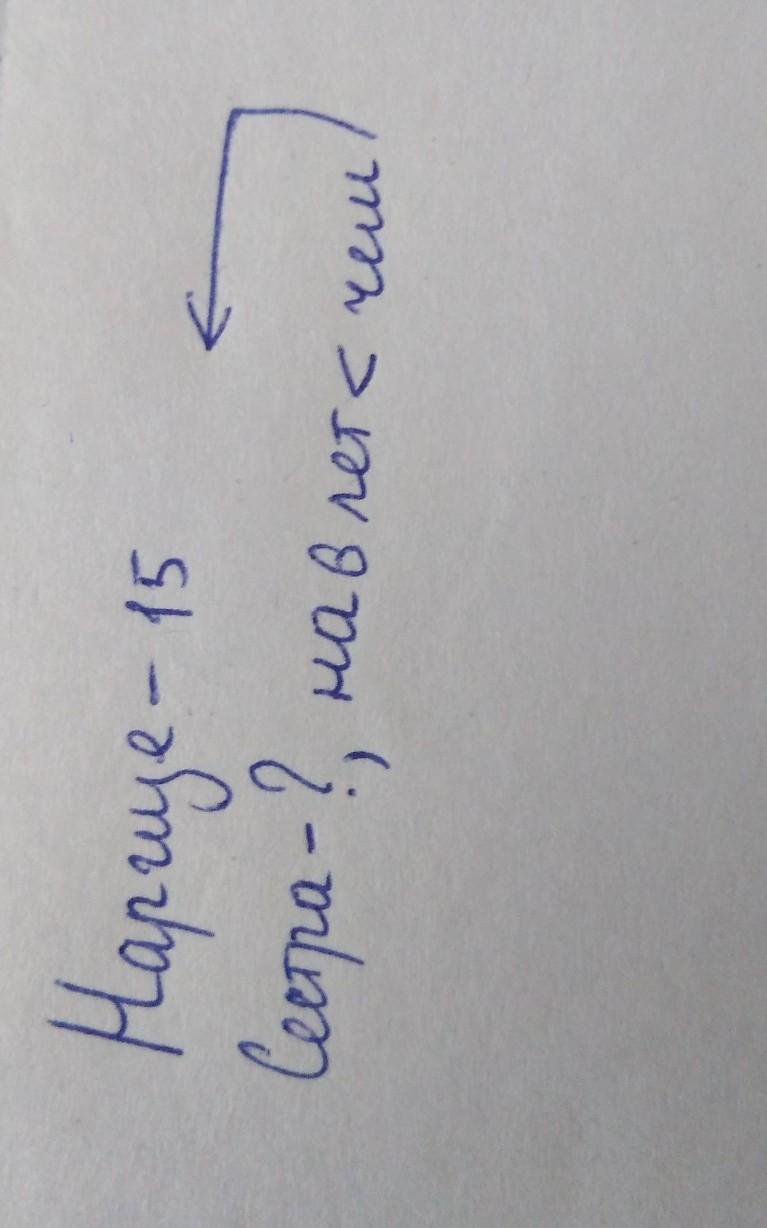 Наргизе - 15
Сестра - ?, на в лет < чем